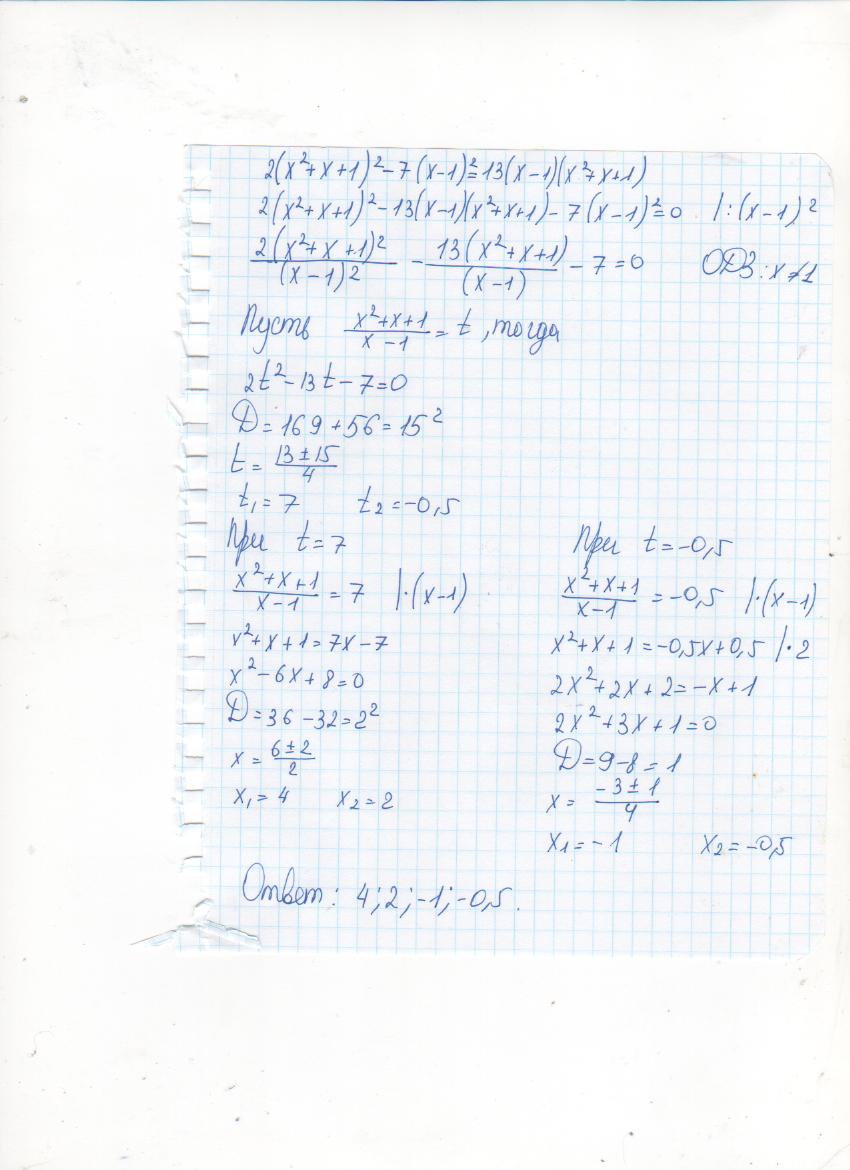 2(x²+x+1)²-7(x-1)²=13(x-1)(x²+x+1)
2(x²+x+1)²-13(x-1)(x²+x+1)-7(x-1)²=0 |:(x-1)²
2(x²+x+1)²/(x-1)² - 13(x²+x+1)/(x-1) - 7=0 ОДЗ: x≠1
Пусть x²+x+1/x-1 = t, тогда
2t²-13t-7=0
D=169+56=15²
t= 13±15/4
t₁=7 t₂=-0,5
При t=7
x²+x+1/x-1 = 7 |·(x-1)
x²+x+1=7x-7
x²-6x+8=0
D=36-32=2²
x= 6±2/2
x₁=4 x₂=2
При t=-0,5
x²+x+1/x-1 =-0,5 |·(x-1)
x²+x+1=-0,5x+0,5 |·2
2x²+2x+2=-x+1
2x²+3x+1=0
D=9-8=1
x= -3±1/4
x₁=-1 x₂=-0,5
Ответ: 4;2;-1;-0,5.